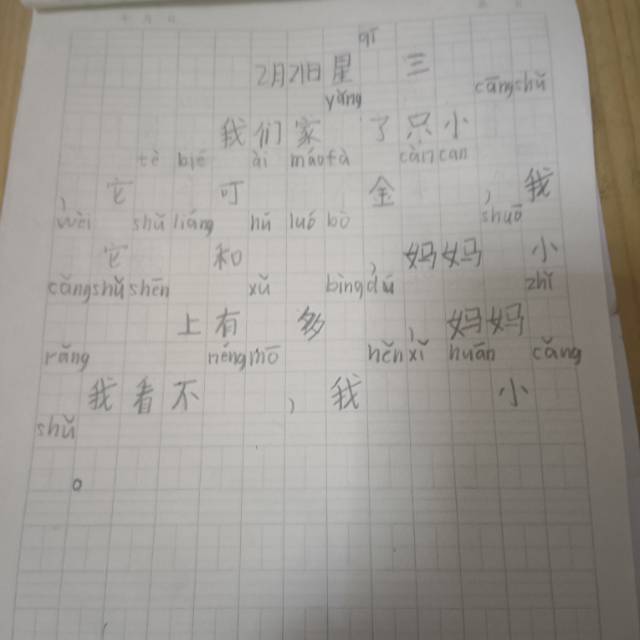 2月21日 星 三
yǎng cāngshǔ
我们家 了只小
tè bié ài máofà càncan
, 它 可 全 , 我
wèi shǔ liáng hú luó bò shuō
它 和 妈妈 小
cāngshǔ shēn xǔ bìngdú zhǐ
上有 多 , 妈妈
rǎng néng mō hěn xǐ huān cāng
我看不 , 我 小
shǔ
。